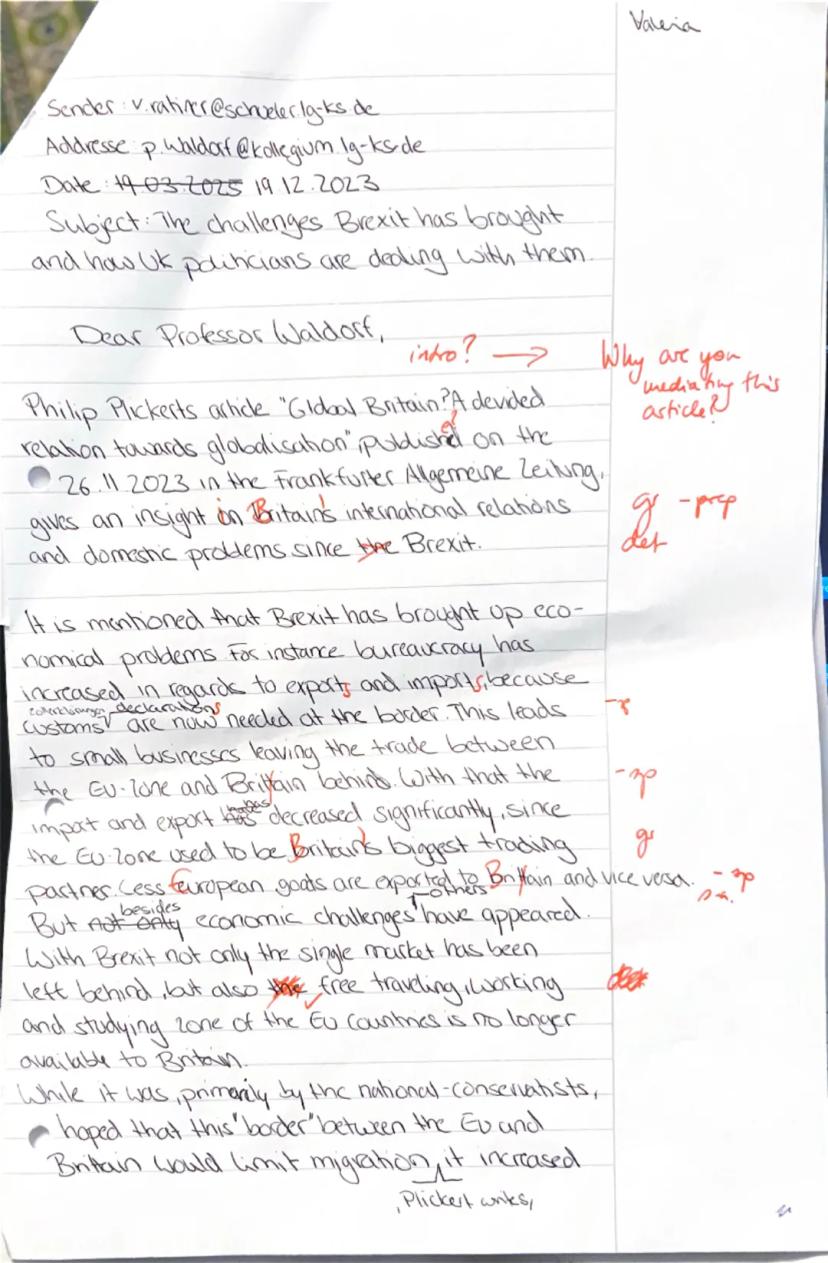 Valeria
Sender: v.rahner@schueler.lg-ks.de
Addresse: p.Waldorf@kollegium.lg-ks.de
Date: 19.03.2025 19.12.2023
Subject: The challenges Brexit has brought
and how UK politicians are dealing with them.
Dear Professor Waldorf,
intro? → Why are you
mediating this
article?
Philip Plickerts article "Global Britain? A devided
relation towards globalisation", published on the
26.11.2023 in the Frankfurter Allgemeine Zeitung,
gives an insight in Britain's international relations gr -prep
and domestic problems since the Brexit. det
It is mentioned that Brexit has brought up eco-
nomical problems. For instance bureaucracy has
increased in regards to exports and imports, because
declarations
customs are now needed at the border. This leads
to small businesses leaving the trade between
the EU-zone and Brittain behind. With that the -sp
import and export has decreased significantly, since
the EU-zone used to be Britain's biggest trading gr
partner. Less European goats are exported to Brittain and vice versa. -sp
besides others
But not only economic challenges have appeared.
With Brexit not only the single market has been
left behind, but also the free traveling, working
and studying zone of the EU countries is no longer
available to Britain.
While it was, primarily by the national-conservatists,
hoped that this "border" between the EU and
Britain would limit migration, it increased
, Plickert writes,